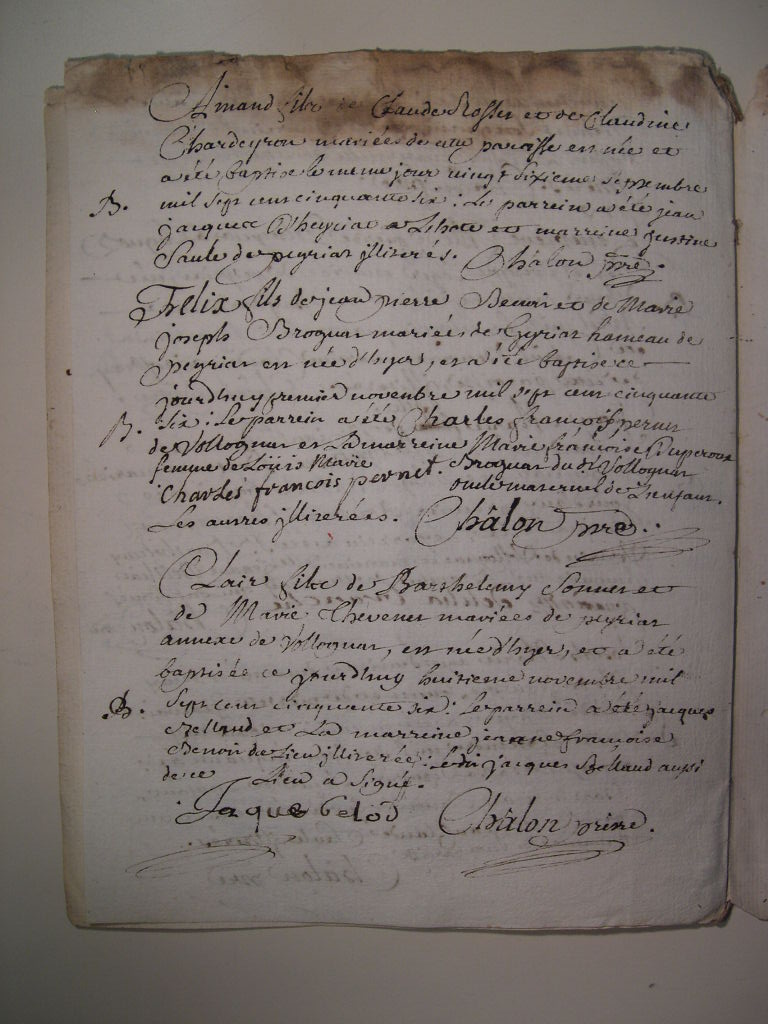 Amand filz de Claude Rosset et de Claudine
Chardeyron mariées de paroisse est née et
a été baptise le meme jour vingt sixieme septembre
B. mil sept cent cinquante six : Le parrein a été jean
jacques a et marreine justine
de peyriat illiterés. Châlon ptre.
Felix fils de jean pierre Benoit et de Marie
joseph Broquat mariées de hameau de
peyriat est née d'hyer, et a été baptise ce
jourdhuy premier novembre mil sept cent cinquante
B. six : Le parrein a été Charles françois pernet
de Vollognat et La marreine Marie françoise
femme de Loüis Marie Broquat du dt Vollognat
Charles francois pernet. oncle maternel de L'enfant.
Les autres illiterées. Châlon ptre.
Clair filz de Barthelemy Sonnet et
de Marie Thevenet mariées de peyriat
annexe de Vollognat, est née d'hyer, et a été
baptisée ce jourdhuy huitieme novembre mil
B. sept cent cinquante six : le parrein a été jacques
Belloud et La marreine jeanne françoise
Benoit de Lieu illiterée : ledit jacques Belloud aussi
de ce Lieu a Signé.
Jaques belod Châlon prtre.